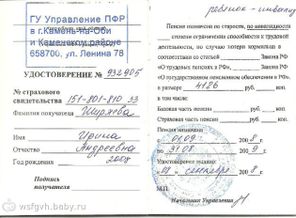 ребенок-инвалид
ГУ Управление ПФР
в г.Камень-на-Оби
и Каменском районе
658700, ул. Ленина 78
УДОСТОВЕРЕНИЕ № 932905
№ страхового
свидетельства 151-801-810 33
Фамилия получателя
Имя Ирина
Отчество Андреевна
Год рождения 2008
Подпись
получателя
Пенсия назначена по старости, по инвалидности
степени ограничения способности к трудовой
деятельности, по случаю потери кормильца в
соответствии со статьей Закона РФ
«О трудовых пенсиях в РФ», Закона РФ
«О государственном пенсионном обеспечении в РФ»,
в размере 4126 руб.
в том числе:
Базовая часть пенсии руб.
Страховая часть пенсии руб.
Пенсия назначена
с 01.09 2008 г.
по 31.08 2009 г.
Удостоверение выдано
сентября 2008 г.
Начальник Управления
wsfgvh.baby.ru